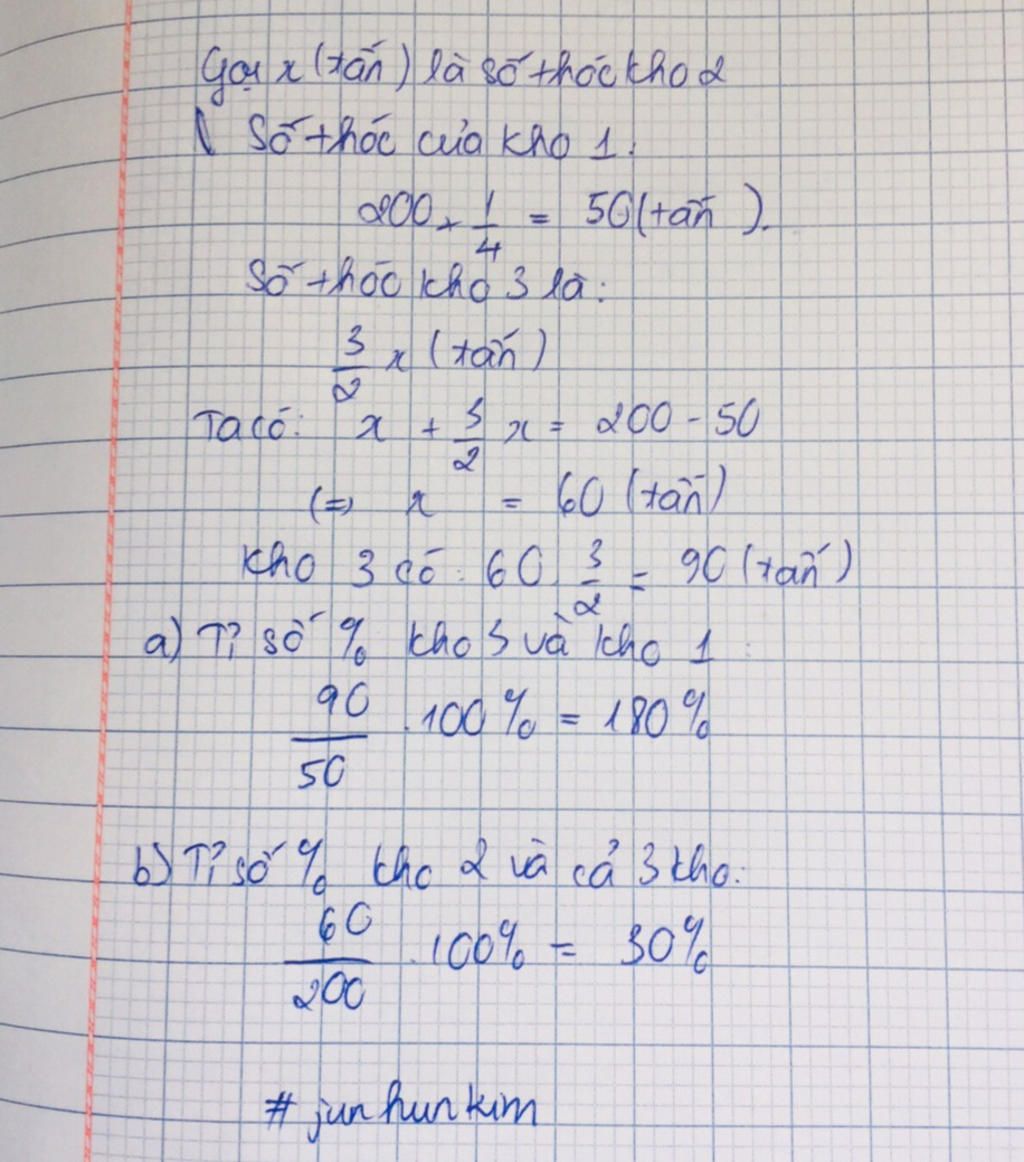 Gọi x (tấn) là số thóc kho 2
Số thóc của kho 1:
200 . 1/4 = 50 (tấn).
Số thóc kho 3 là:
3/2 x (tấn)
Ta có: x + 3/2 x = 200 - 50
(=) x = 60 (tấn)
Kho 3 có: 60 . 3/2 = 90 (tấn)
a) Tỉ số % kho 3 và kho 1:
90/50 . 100% = 180%
b) Tỉ số % kho 2 và cả 3 kho:
60/200 . 100% = 30%
# junhunkim